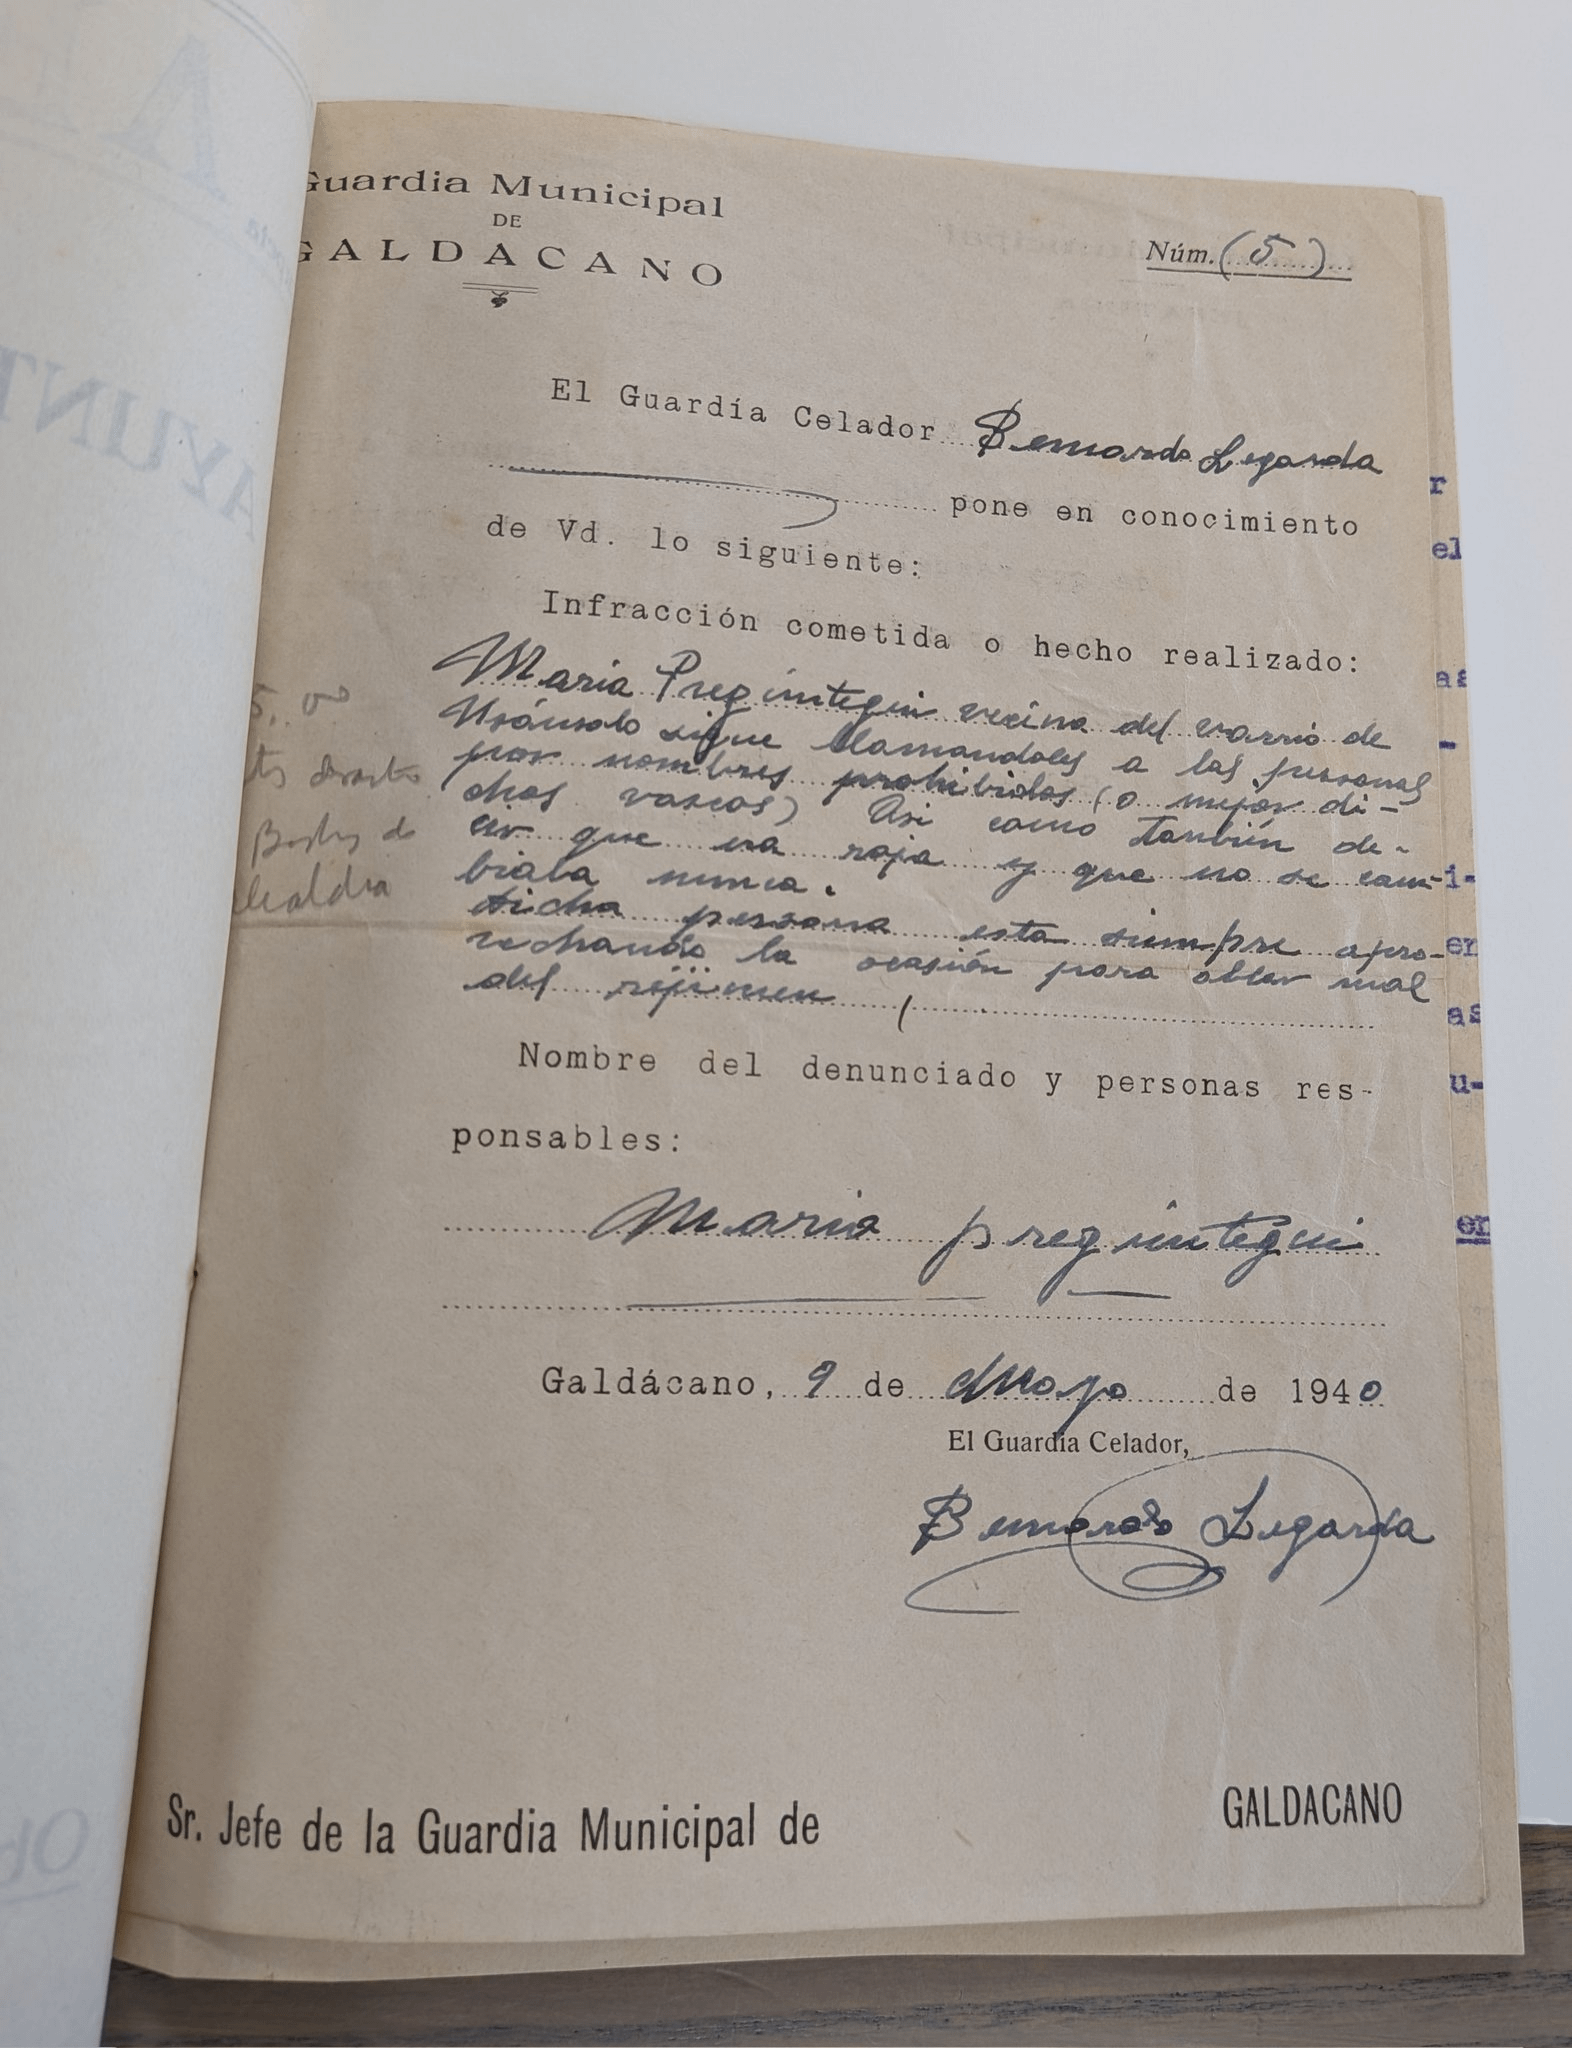 Guardia Municipal
DE
GALDACANO
Núm. (5)
El Guardía Celador Bernardo Legarda
pone en conocimiento
de Vd. lo siguiente:
Infracción cometida o hecho realizado:
Maria Preguntegui vecina del varrio de
Usánsolo sigue llamandoles a las personas
por nombres prohibidos (o mejor di-
chos vascos) Asi como también de-
cir que era roja y que no se cam-
biaba nunca.
dicha persona esta siempre apro-
vechando la ocasión para ablar mal
del rejimen
Nombre del denunciado y personas res-
ponsables:
Maria preguntegui
Galdácano, 9 de Mayo de 1940
El Guardia Celador,
Bernardo Legarda
Sr. Jefe de la Guardia Municipal de GALDACANO
r
el
as
-
i-
en
as
u-
en